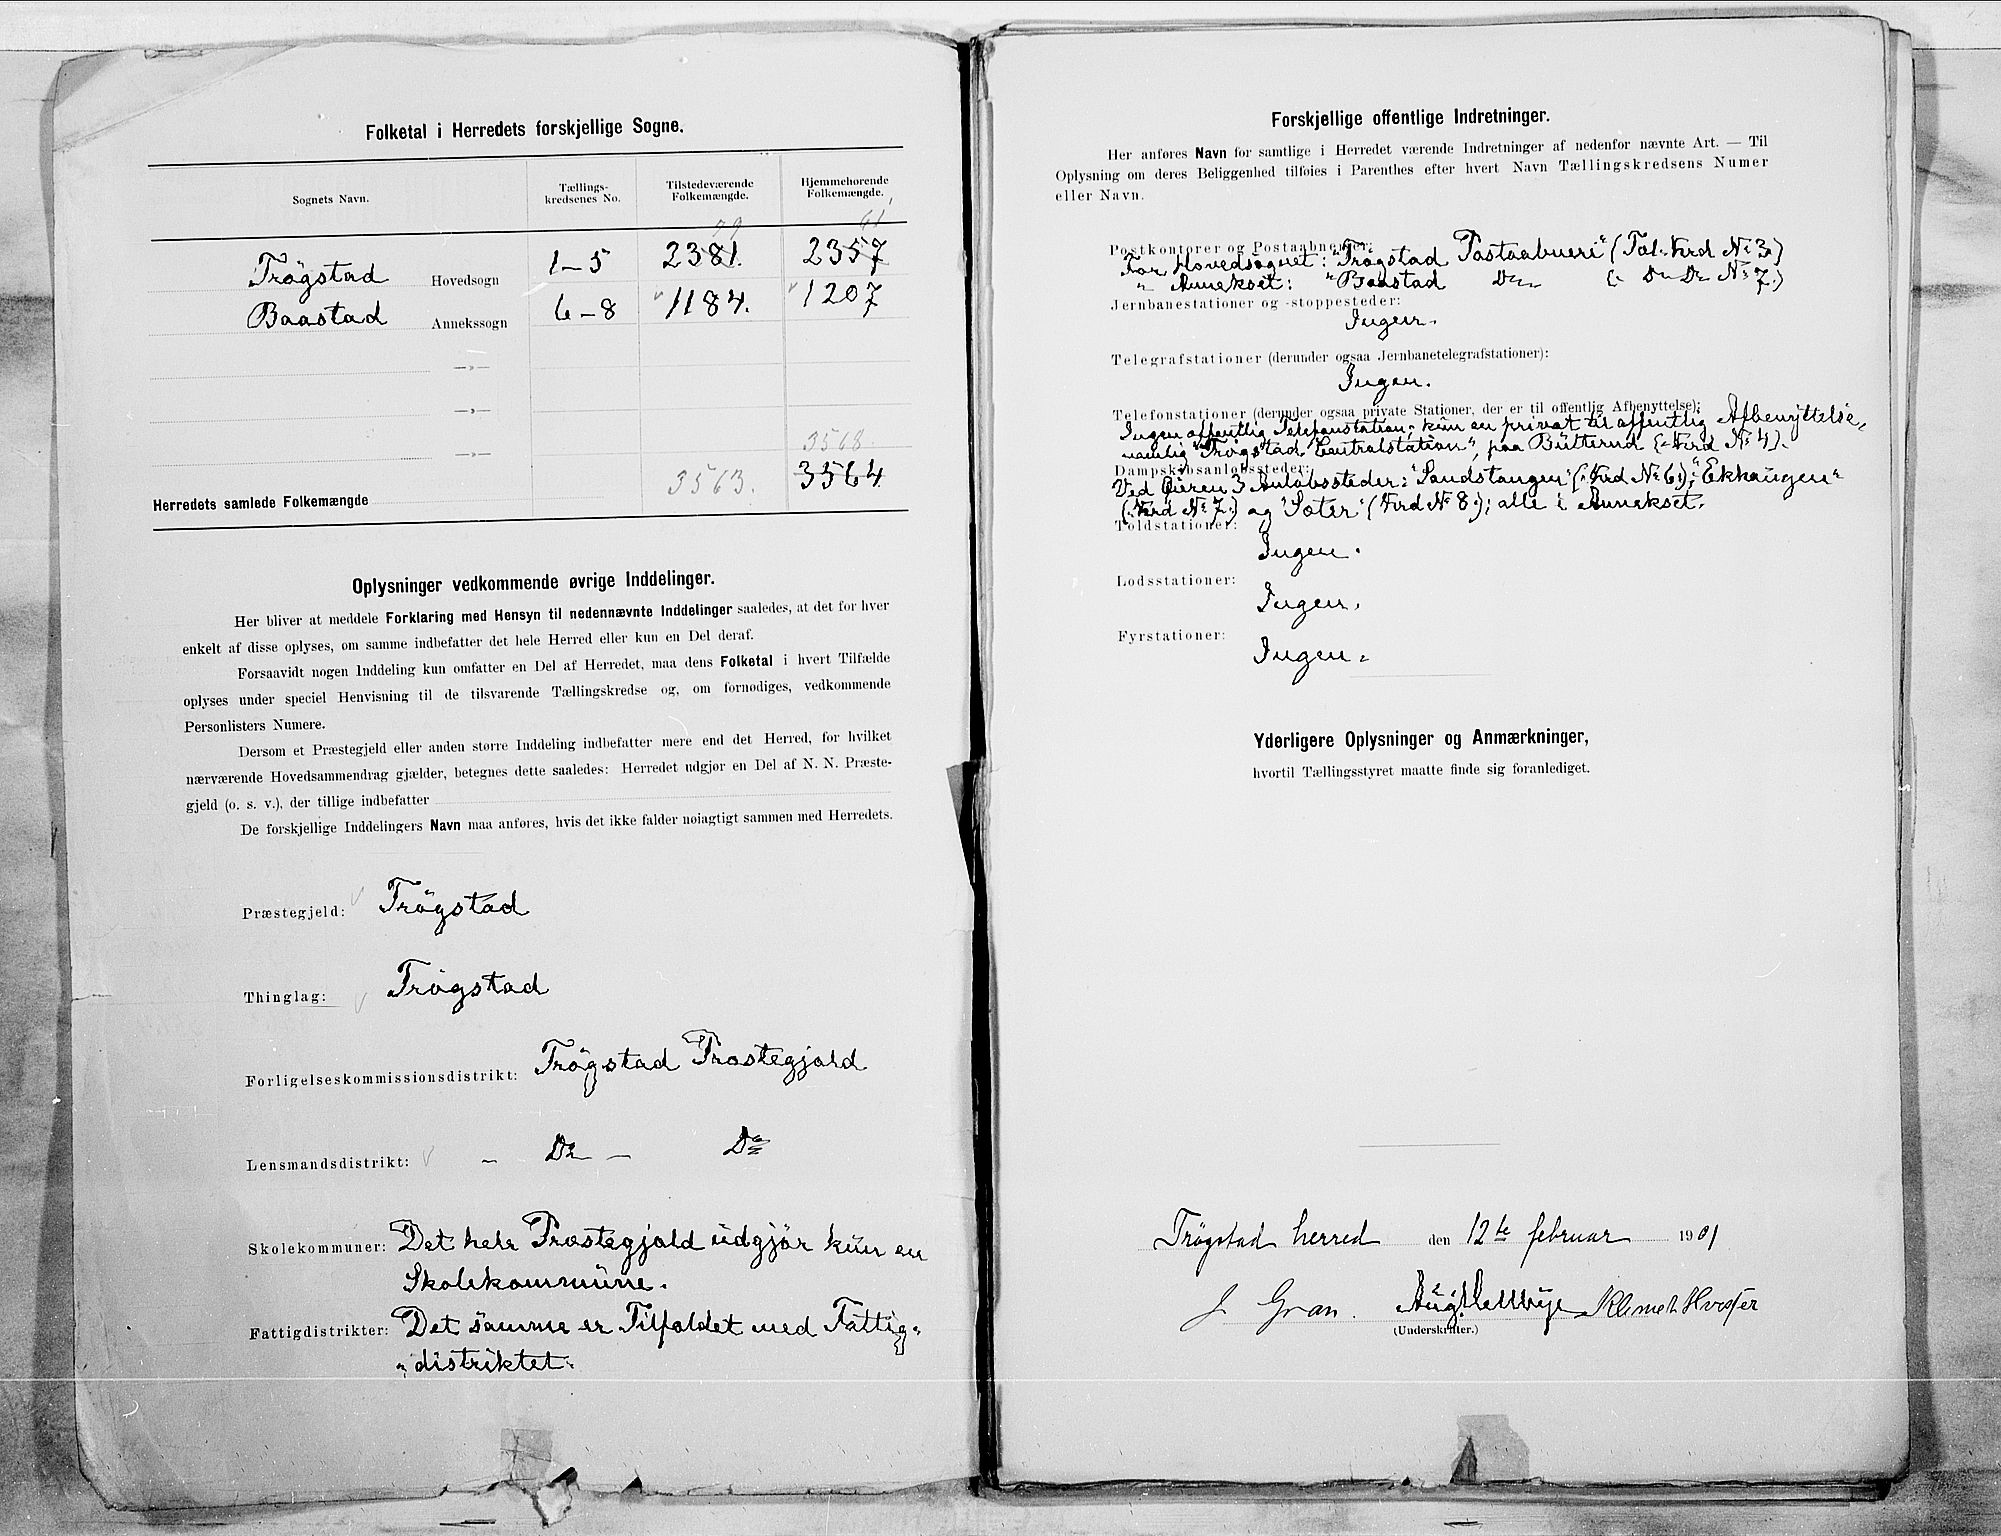 Folketal i Herredets forskjellige Sogne.
Sognets Navn. Tællings- kredsenes No. Tilstedeværende Folkemængde. Hjemmehørende Folkemængde.
79 61
Trögstad Hovedsogn 1-5 2381. 2357
Baastad Annekssogn 6-8 1184. 1207
—»—
—»—
3568.
—»—
Herredets samlede Folkemængde 3563. 3564
Oplysninger vedkommende øvrige Inddelinger.
Her bliver at meddele Forklaring med Hensyn til nedennævnte Inddelinger saaledes, at det for hver
enkelt af disse oplyses, om samme indbefatter det hele Herred eller kun en Del deraf.
Forsaavidt nogen Inddeling kun omfatter en Del af Herredet, maa dens Folketal i hvert Tilfælde
oplyses under speciel Henvisning til de tilsvarende Tællingskredse og, om fornødiges, vedkommende
Personlisters Numere.
Dersom et Præstegjeld eller anden større Inddeling indbefatter mere end det Herred, for hvilket
nærværende Hovedsammendrag gjælder, betegnes dette saaledes: Herredet udgjør en Del af N. N. Præste-
gjeld (o. s. v.), der tillige indbefatter
De forskjellige Inddelingers Navn maa anføres, hvis det ikke falder nøiagtigt sammen med Herredets.
Præstegjeld: Trögstad
Thinglag: Trögstad
Forligelseskommissionsdistrikt: Trögstad Præstegjæld
Lensmandsdistrikt: – Do – Do
Skolekommuner: Det hele Præstegjæld udgjør kun en
Skolekommune.
Fattigdistrikter: Det samme er Tilfældet med Fattig-
distriktet.
Forskjellige offentlige Indretninger.
Her anføres Navn for samtlige i Herredet værende Indretninger af nedenfor nævnte Art. — Til
Oplysning om deres Beliggenhed tilføies i Parenthes efter hvert Navn Tællingskredsens Numer
eller Navn.
Postkontorer og Postaabnerier:
For Hovedsognet: "Trøgstad Postaabneri" (Tæl. Krd No 3)
" Annekset: "Baastad Do (" Do Do No 7.)
Jernbanestationer og -stoppesteder:
Ingen.
Telegrafstationer (derunder ogsaa Jernbanetelegrafstationer):
Ingen.
Telefonstationer (derunder ogsaa private Stationer, der er til offentlig Afbenyttelse):
Ingen offentlig Telefonstation; kun en privat til offentlig Afbenyttelse,
nemlig "Trøgstad Centralstation", paa Bütterud (Krd No 4).
Dampskibsanløbssteder:
Ved Øieren 3 Anløbssteder: "Sandstangen" (Krd No 6); "Ekhaugen"
(Krd No 7.) og "Sæter" (Krd No 8); alle i Annekset.
Toldstationer:
Ingen.
Lodsstationer:
Ingen.
Fyrstationer:
Ingen.
Yderligere Oplysninger og Anmærkninger,
hvortil Tællingsstyret maatte finde sig foranlediget.
Trøgstad herred den 12te februar 1901
J Gran. Aug. Klemet
(Underskrifter.)